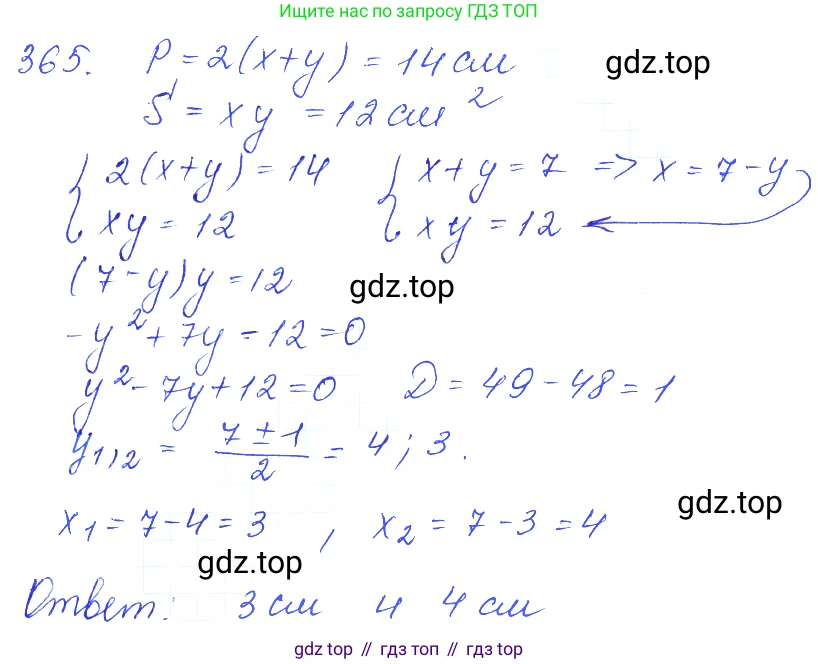 Ищите нас по запросу ГДЗ ТОП
365. P = 2(x+y) = 14 см gdz.top
S = xy = 12 см²
{ 2(x+y) = 14 { x+y = 7 => x = 7-y
xy = 12 xy = 12
(7-y)y = 12 gdz.top
-y² + 7y - 12 = 0
y² - 7y + 12 = 0 D = 49 - 48 = 1
y₁,₂ = (7 ± 1)/2 = 4; 3.
gdz.top
x₁ = 7-4 = 3, x₂ = 7-3 = 4
gdz.top
Ответ: 3 см и 4 см
gdz top // гдз топ // gdz.top